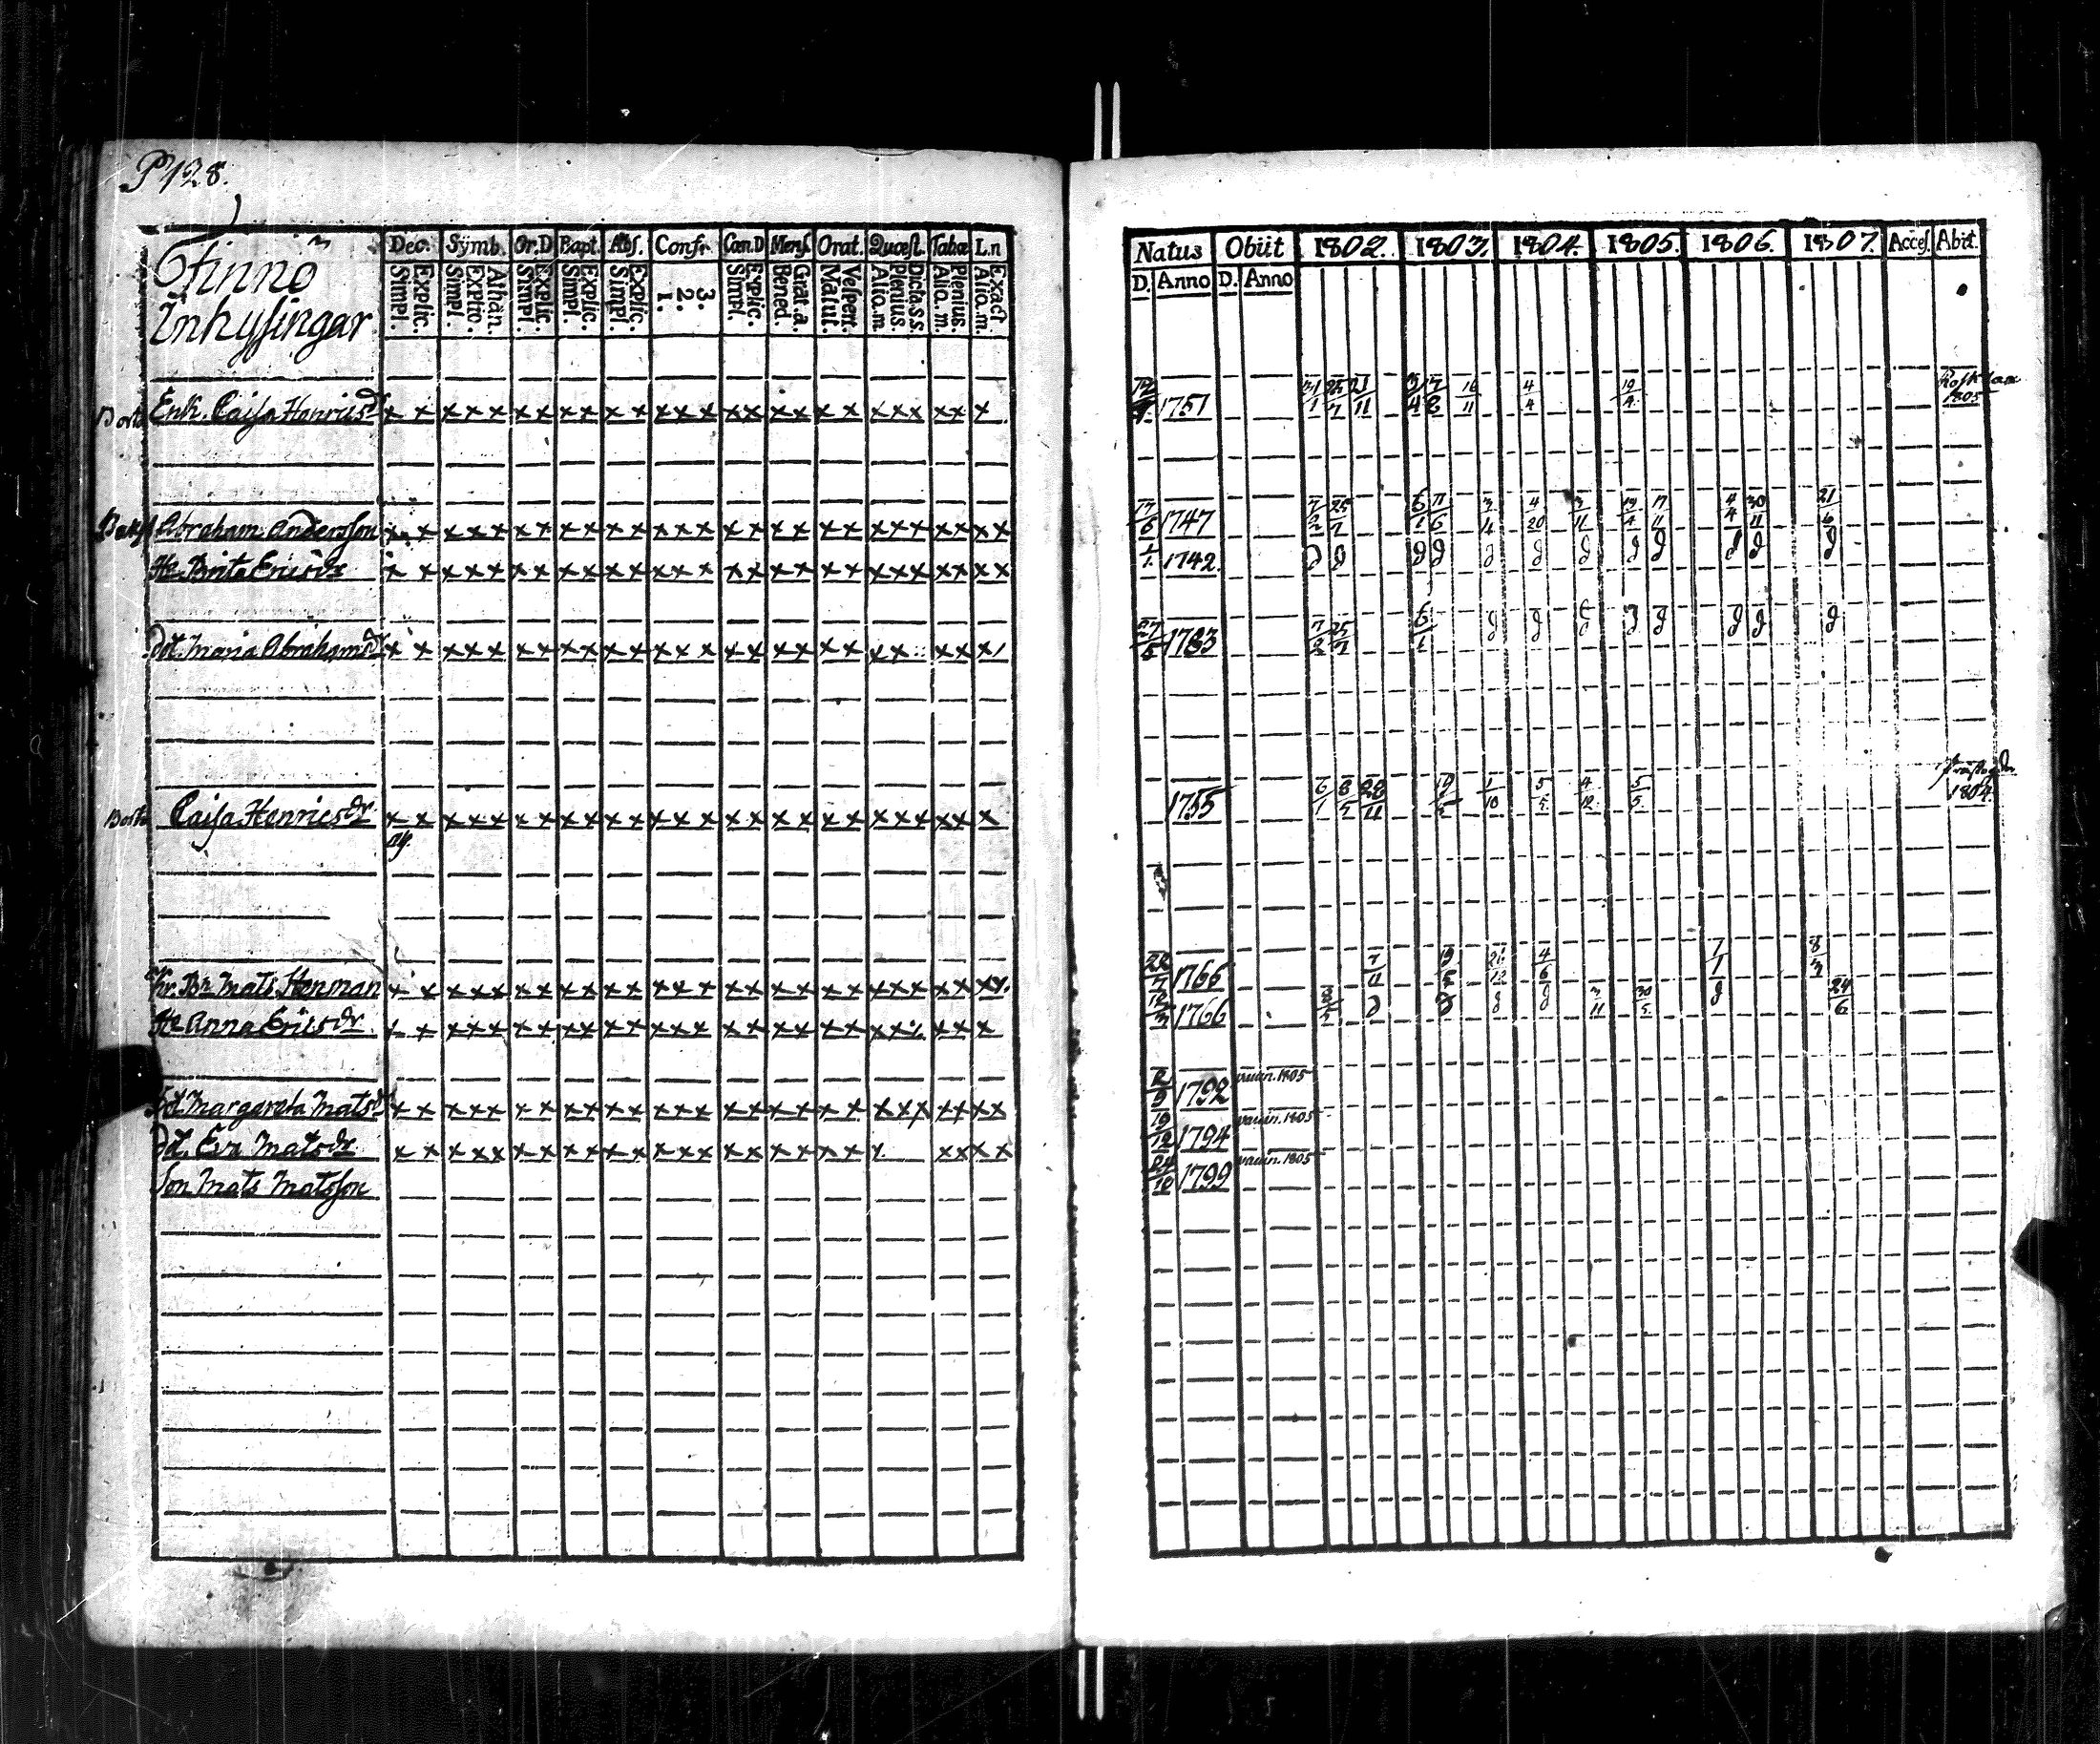 P 128.
Finnö
Inhysingar
Dec. Symb. Or.D Bapt. Abs. Confr Cœn.D Mens. Orat. Quæst. Tabæ L.n
Simpl. Explic. Simpl. Explic. Athan. Simpl. Explic. Simpl. Explic. Simpl. Explic. 1. 2. 3. Simpl. Explic. Bened. Grat.a. Matut. Vespert. Alio.m. Plenius. Dicta.s.s. Alio.m. Plenius. Alio.m. Exact
Borta Enk. Caisa Henricsdr x x x x x x x x x x x x x x x x x x x x x x x x x x
Abraham Andersson x x x x x x x x x x x x x x x x x x x x x x x x x x x
Hu Brita Ericsdr x x x x x x x x x x x x x x x x x x x x x x x x x x x
Dot. Maria Abrahamsdr x x x x x x x x x x x x x x x x x x x x x x x x x
Borta Caisa Henricsdr x x x x x x x x x x x x x x x x x x x x x x x x x x
Bn Mats Henman x x x x x x x x x x x x x x x x x x x x x x x x x x x
Hu Anna Ericsdr x x x x x x x x x x x x x x x x x x x x x x x x x x
Dot Margareta Matsdr x x x x x x x x x x x x x x x x x x x x x x x x x x x
Dot. Eva Matsdr x x x x x x x x x x x x x x x x x x x x x x x x x
Son Mats Matsson
Natus Obiit 1802. 1803. 1804. 1805. 1806. 1807. Acces. Abiit.
D. Anno D. Anno
1751 25/7 21/11 16/11 4/4 19/4 1805
17/6 1747 7/2 25/7 6/1 11/6 4/20 3/11 19/4 17/11 4/4 30/11 21/6
1742. d d d d d d d d d d d d
27/5 1783 7/2 25/7 6/1 d d d d d d d
1755 6/1 8/5 28/11 1/10 5/5 4/12 5/5 1804.
22/7 1765 7/11 19/5 26/12 4/6 7/1 8/3
1766 d d d d 3/11 30/5 d 24/6
1792 vaccin. 1805
19/12 1794 vaccin. 1805
24/10 1799 vaccin. 1805